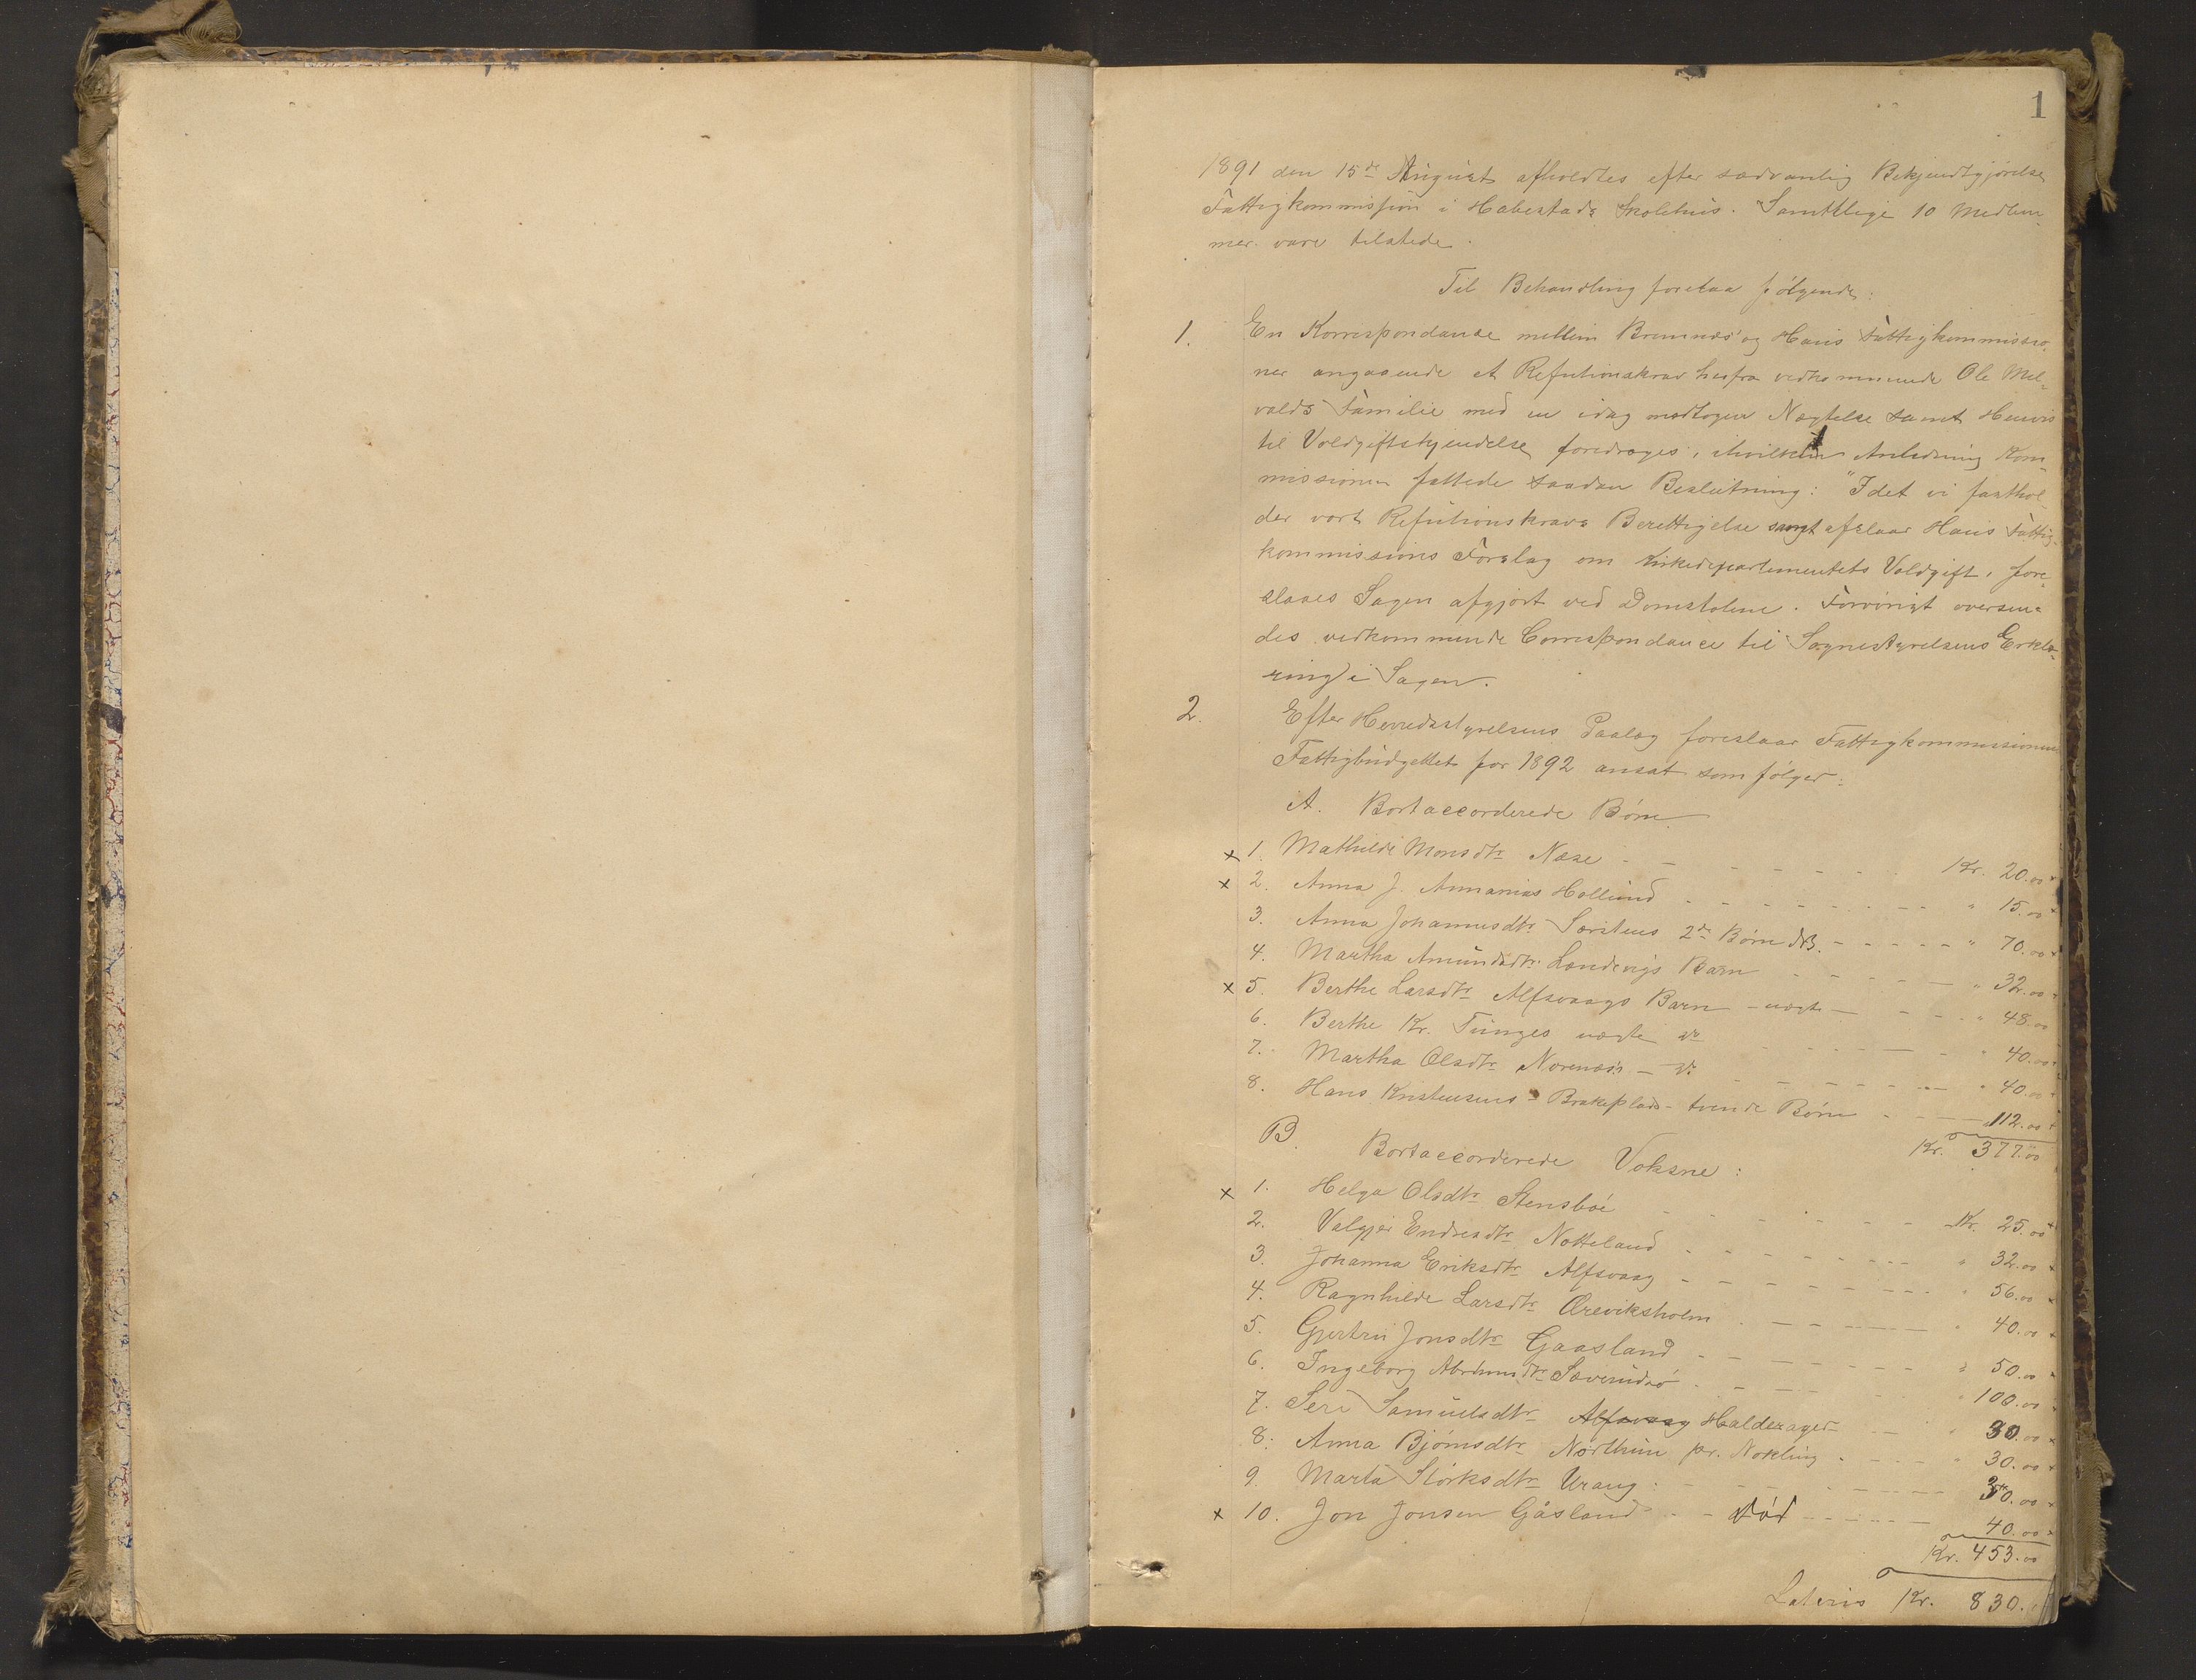 1
1891 den 15de August afholdtes efter sædvanlig Bekjendtgjørelse
Fattigkommission i Habestads Skolehus. Samtlige 10 Medlem-
mer vare tilstede.
Til Behandling foretaa følgende:
1. En Korrespondance mellem Bremnæs og Haus Fattigkommissio-
ner angaaende et Refutionskrav herfra vedkommende Ole Mel-
valds Familie med en idag modtagen Nægtelse samt Henvis
til Voldgiftskjendelse foredroges, i hvilken Anledning Kom-
missionen fattede saadan Beslutning: "Idet vi fasthol
der vort Refutionskravs Berettigelse samt afslaar Haus Fattig-
kommissions Forslag om Kirkedepartementets Voldgift, fore-
slaaes Sagen afgjort ved Domstolene. Forøvrigt oversen-
des vedkommende Correspondance til Sognestyrelsens Erklæ-
ring i Sagen.
2. Efter Herredsstyrelsens Paalæg foreslaar Fattigkommissionen
Fattigbudgettet for 1892 ansat som følger:
A. Bortaccorderede Børn
x 1. Mathilde Monsdtr Næse - - - - - - Kr. 20.00
x 2. Anna J. Annanias Hollund - - - - - - " 15.00
3. Anna Johannesdtr. Særstens 2de Børn - - - - - " 70.00
4. Martha Amundsdtr. Landevigs Barn - - - - " 32.00
x 5. Berthe Larsdtr Alfsvaags Barn - uægte - - - " 48.00
6. Berthe Kr. Tunges uægte do - - - " 40.00
7. Martha Olsdtr Norenæs - do - - - - - " 40.00
8. Hans Kristensens - Brakeplads - tvende Børn - - - 112.00
Kr. 377.00
B. Bortaccorderede Voksne:
x 1. Helga Olsdtr Stensbøe - - - - - - Kr. 25.00
2. Valgjer Endresdtr Notteland - - - - - - " 32.00
3. Johanna Eriksdtr Alfsvaag - - - - - - " 56.00
4. Ragnhilde Larsdtr Øreviksholm - - - - " 40.00
5. Gjertru Jonsdtr Gaasland - - - - - - " 50.00
6. Ingeborg Abrahmsdtr Sæverudsø - - - - " 100.00
7. Seri Samuelsdtr Alfsvaag Halderager - - " 30.00
8. Anna Bjørnsdtr Northun pr. Nokling - - - " 30.00
9. Marta Størksdtr Urang: - - - - - - 50.00
x 10. Jon Jonsen Gåsland - - død - - - - 40.00
Kr. 453.00
Lateris Kr. 830.